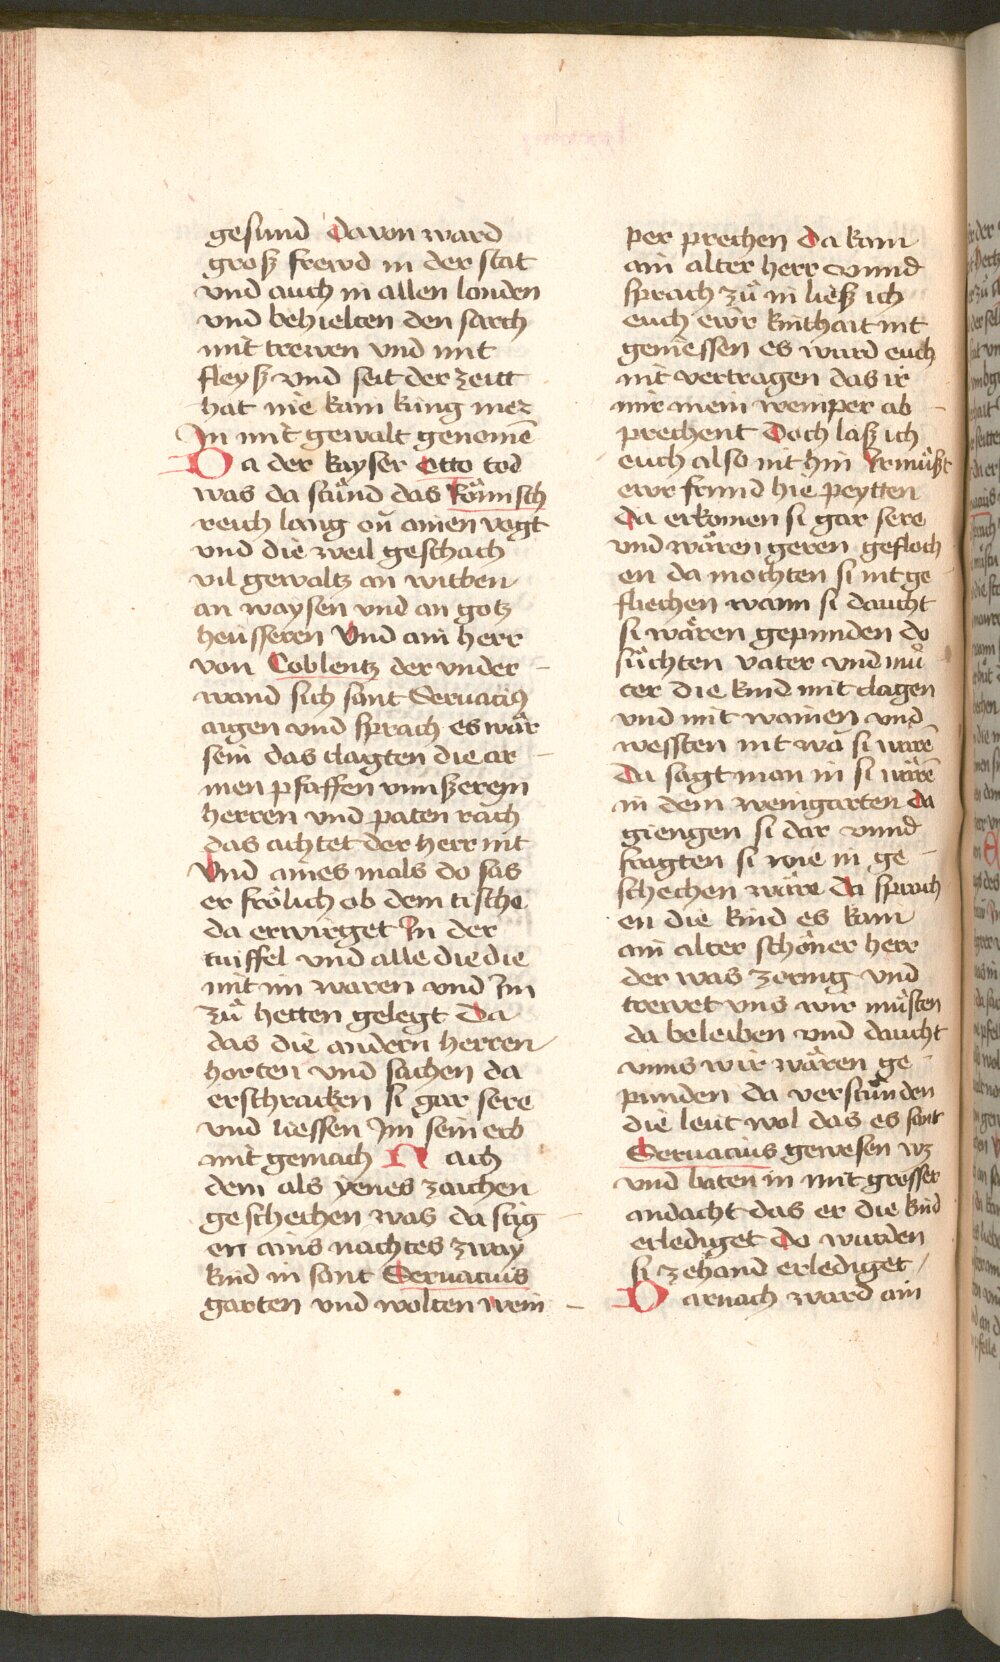 gesund Davon ward
grosz frewd in der stat
vnd auch in allen landen
vnd behielten den sarch
mit trewen vnd mit
fleysz vnd seit der zeitt
hat nie kain king mer
In mit gewalt genomē
Da der kayser Otto tod
was da stůnd das Römisch
reich lang on̄ ainen vogt
vnd die weil geschach
vil gewaltz an witben
an waysen vnd an gotz
heüsseren Vnd ain herr
von Coblentz der vnder
wand sich sant Seruatiꝰ
aigen vnd sprach es wär
sein das clagten die ar
men pfaffen vnnszerem
herren vnd paten rach
das achtet der herr nit
Vnd aines mals do sas
er frölich ob dem tische
da erwirget In der
tuiffel vnd alle die die
mit im waren vnd Im
zů hetten gelegt Da
das die andern herren
horten vnd sachen da
erschracken si gar sere
vnd liessen Im sein erb
mit gemach Nach
dem als yenes zaichen
geschechen was da stig
en ains nachtes zway
kind in sant Seruacius
garten vnd wolten wein
per prechen Da kam
ain alter herr vnnd
sprach zů in liesz ich
euch ewr kinthait nit
geniessen es wurd euch
nit vertragen das ir
mir mein weinper ab
prechent Doch lasz ich
euch also nit hin Ir müszt
ewr frund hie peytten
Da erkomen si gar sere
vnd wären geren gefloch
en da mochten si nit ge
fliechen wann si daucht
si wären gepunden do
sůchten vater vnd můͦ
ter die kind mit clagen
vnd mit wainen vnd
wessten nit wa si warē
Da sagt man in si wärē
in dem weingarten Da
giengen si dar vnnd
fragten si wie in ge
schechen wäre Da sprach
en die kind es kam
ain alter schöner herr
der was zornig vnd
trewet vns wir müsten
da beleiben vnd daucht
vnns wir wären ge
punden da verstůnden
die leut wol das es sant
Seruacius gewesen wz
vnd baten in mit grosser
andacht das er die kind
erlediget Do wurden
si zehand erlediget
Darnach ward ain